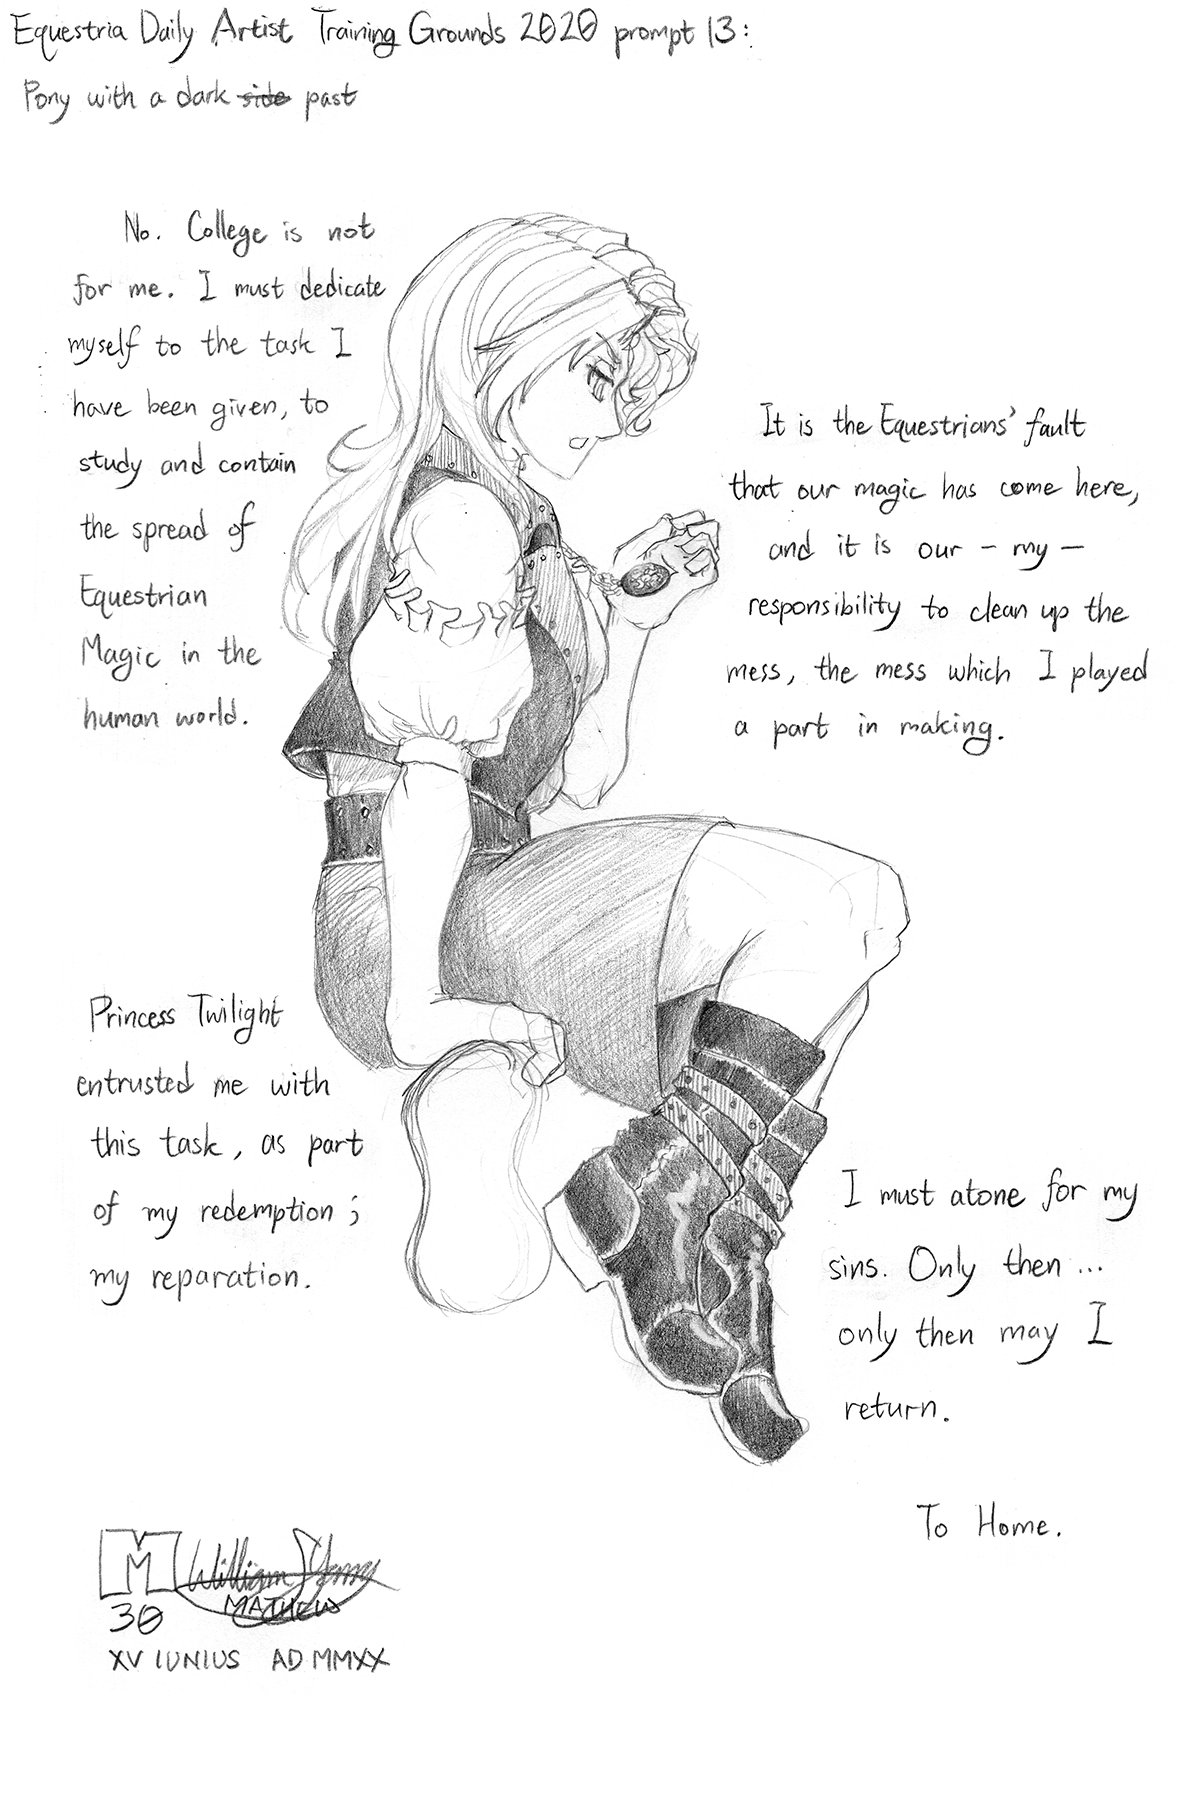 Equestria Daily Artist Training Grounds 2020 prompt 13:
Pony with a dark side past
No. College is not
for me. I must dedicate
myself to the task I
have been given, to
study and contain
the spread of
Equestrian
Magic in the
human world.
It is the Equestrians' fault
that our magic has come here,
and it is our - my -
responsibility to clean up the
mess, the mess which I played
a part in making.
Princess Twilight
entrusted me with
this task, as part
of my redemption;
my reparation.
I must atone for my
sins. Only then ...
only then may I
return.
To Home.
M William
MATHEW
30
XV IUNIUS AD MMXX